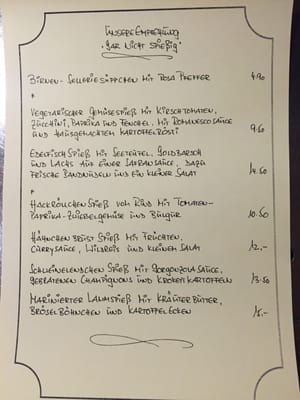 Unsere Empfehlung
"Gar nicht spießig"
Birnen-Selleriesüppchen mit Rosa Pfeffer 4.90
*
Vegetarischer Gemüsespieß mit Kirschtomaten,
Zucchini, Paprika und Fenchel. Mit Romanescosauce
und Hausgemachtem Kartoffelrösti 9.50
Edelfisch Spieß mit Seeteufel, Goldbarsch
und Lachs auf einer Safransauce, dazu
frische Bandnudeln und ein kleiner Salat 14.50
*
Hackröllchen Spieß vom Rind mit Tomaten-
Paprika-Zwiebelgemüse und Bulgur 10.50
Hähnchenbrust Spieß mit Früchten,
Currysauce, Wildreis und kleinem Salat 12,-
Schweinelendchen Spieß mit Gorgonzolasauce,
gebratenen Champignons und Kroketkartoffeln 13.50
Marinierter Lammspieß mit Kräuterbutter,
Bröselböhnchen und Kartoffelecken 15.-